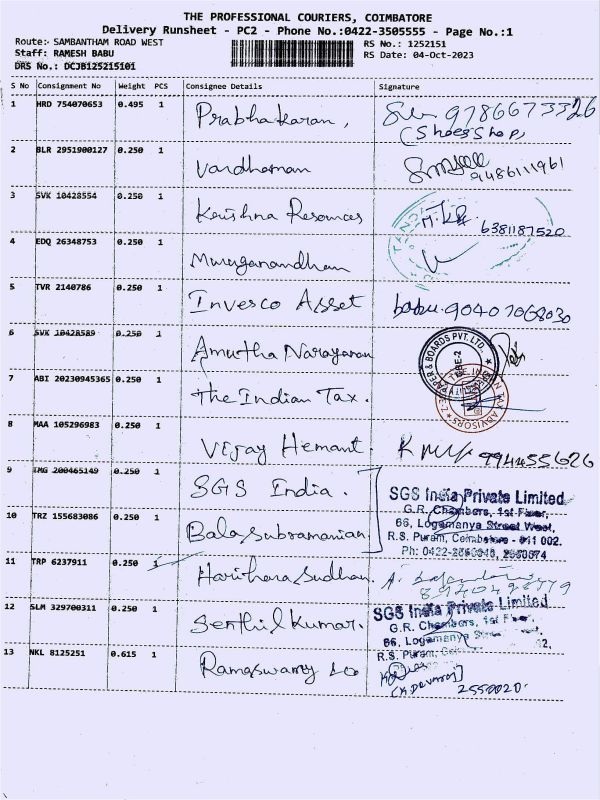 THE PROFESSIONAL COURIERS, COIMBATORE
Delivery Runsheet - PC2 - Phone No.:0422-3505555 - Page No.:1
Route:- SAMBANTHAM ROAD WEST RS No.: 1252151
Staff: RAMESH BABU RS Date: 04-Oct-2023
DRS No.: DCJB125215101
S No Consignment No Weight PCS Consignee Details Signature
1 HRD 754070653 0.495 1 Prabhakaran, 9786673326
(Shoes Shop)
2 BLR 2951900127 0.250 1 Vardhaman 9486111961
3 SVK 10428554 0.250 1 Krishna Resources 6381187520
4 EDQ 26348753 0.250 1 Muruganandham
5 TVR 2140786 0.250 1 Invesco Asset babu. 90407068030
6 SVK 10428589 0.250 1 Amutha Narayanan PAPER & BOARDS PVT.LTD. CBE-2
7 ABI 20230945365 0.250 1 The Indian Tax. ADVISORS
8 MAA 105296983 0.250 1 Vijay Hemant. 994455626
9 IMG 200465149 0.250 1 SGS India. SGS India Private Limited
G.R. Chambers, 1st Floor,
10 TRZ 155683086 0.250 1 Bala Subramanian 66, Logamanya Street West,
R.S. Puram, Coimbatore - 641 002.
Ph: 0422-
11 TRP 6237911 0.250 1 Harihara Sudhan.
12 SLM 329700311 0.250 1 Senthil Kumar. SGS India Private Limited
G.R. Chambers, 1st
66, Logamanya
13 NKL 8125251 0.615 1 Ramaswamy R.S. Puram,
(K Devaraj) 2550020.